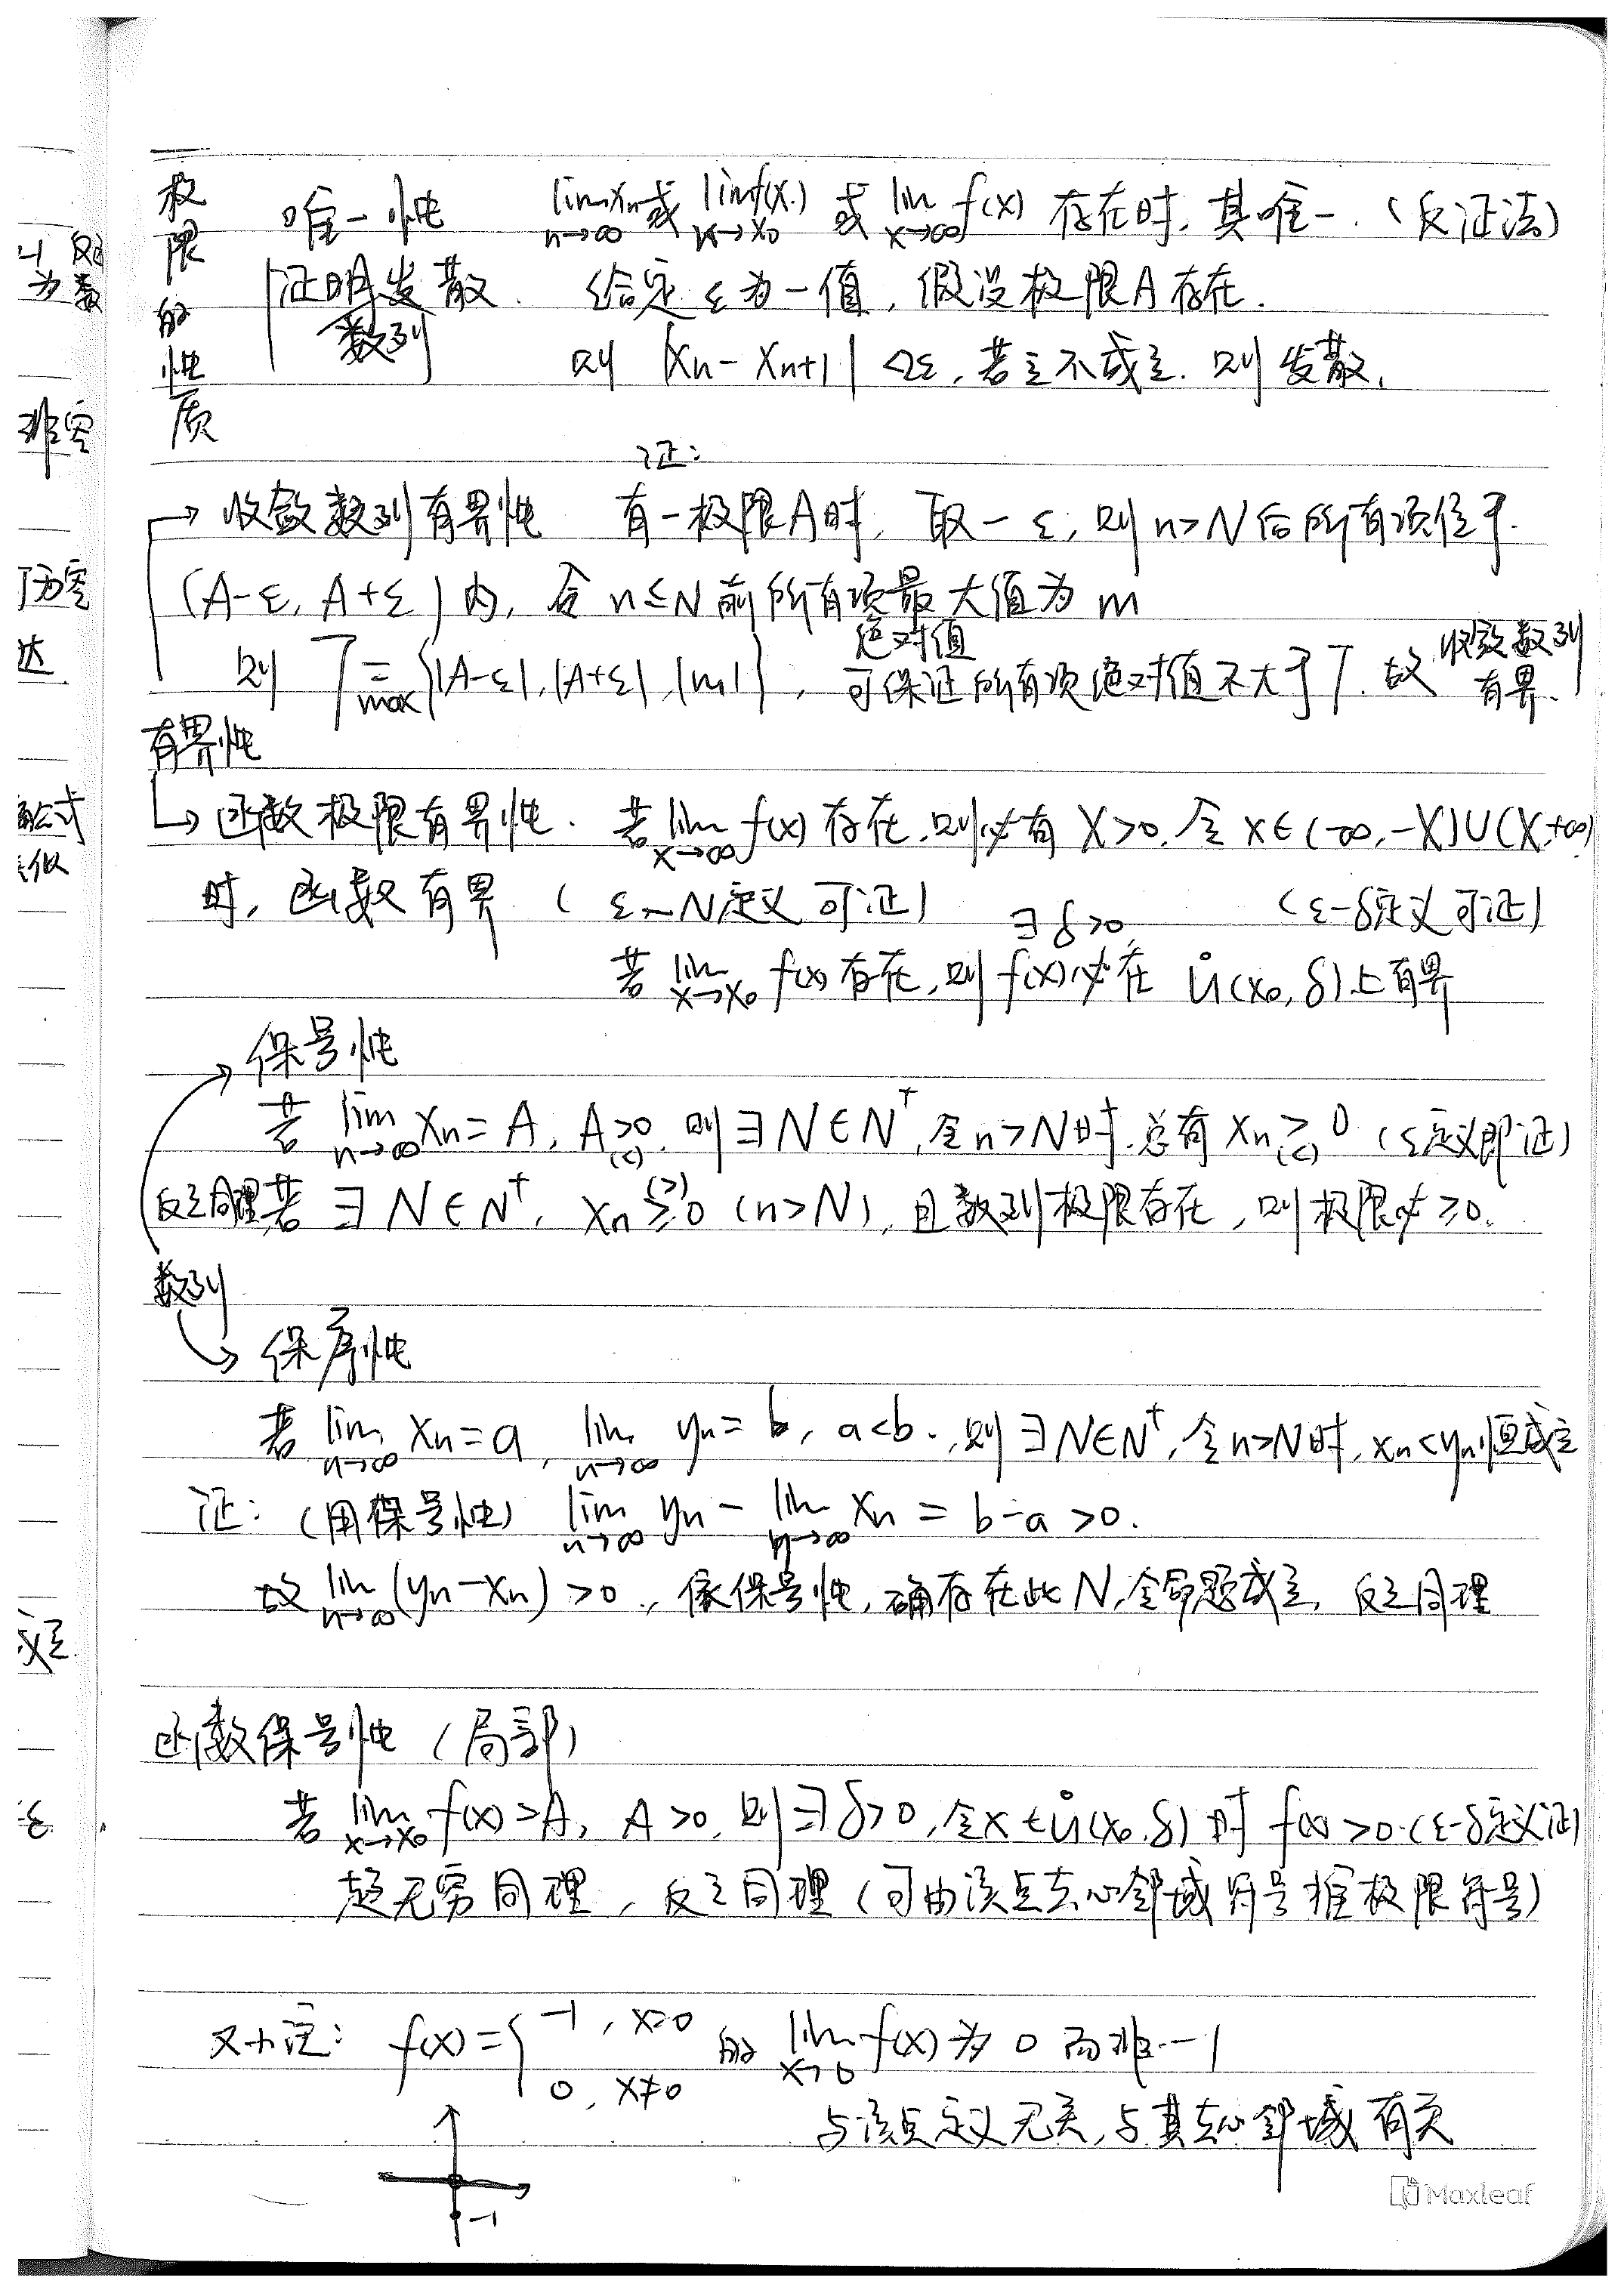 极限的性质
唯一性 lim_{n→∞} xn 或 lim_{x→x0} f(x) 或 lim_{x→∞} f(x) 存在时, 其唯一. (反证法)
证明发散数列. 给定 ε 为一值, 假设极限A存在.
则 |xn - xn+1| < 2ε, 若之不成立. 则发散.
证:
→ 收敛数列有界性 有一极限A时, 取一 ε, 则 n>N 后所有项位于
(A-ε, A+ε) 内, 令 n≤N 前所有项最大值为 m
绝对值
则 T = max{|A-ε|, |A+ε|, |m|}, 可保证所有项绝对值不大于T. 故收敛数列有界.
有界性
↳ 函数极限有界性. 若 lim_{x→∞} f(x) 存在, 则必有 X>0, 令 x∈(-∞, -X)∪(X, +∞)
时, 函数有界 (ε-N定义可证)
(ε-δ定义可证)
若 lim_{x→x0} f(x) 存在, 则 ∃δ>0, f(x) 必在 Ů(x0, δ) 上有界
→ 保号性
若 lim_{n→∞} xn = A, A>0 (<), 则 ∃N∈N⁺, 令 n>N 时, 总有 xn > 0 (<) (ε定义即证)
反之同理 若 ∃N∈N⁺, xn ≥ 0 (>) (n>N), 且数列极限存在, 则极限必 ≥0.
数列
→ 保序性
若 lim_{n→∞} xn = a, lim_{n→∞} yn = b, a<b., 则 ∃N∈N⁺, 令 n>N 时, xn<yn 恒成立
证: (用保号性) lim_{n→∞} yn - lim_{n→∞} xn = b-a >0.
故 lim_{n→∞} (yn-xn) >0., 依保号性, 确存在此N, 令命题成立, 反之同理
函数保号性 (局部)
若 lim_{x→x0} f(x)=A, A>0, 则 ∃δ>0, 令 x∈Ů(x0, δ) 时 f(x)>0. (ε-δ定义证)
趋无穷同理, 反之同理 (可由该点去心邻域符号推极限符号)
又十注: f(x)={ -1, x=0
0, x≠0 的 lim_{x→0} f(x) 为 0 而非 -1
与该点定义无关, 与其去心邻域有关
-1
Maxleaf
非零
为零
达
公式